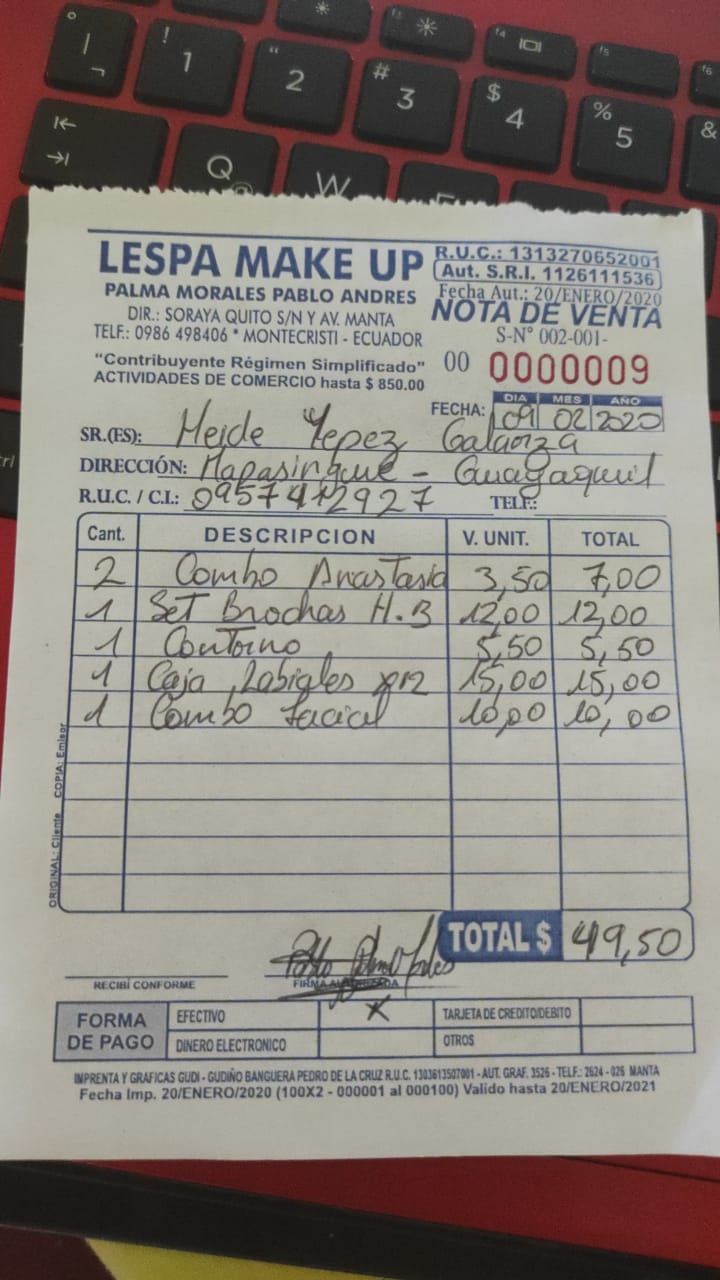 LESPA MAKE UP
PALMA MORALES PABLO ANDRES
DIR.: SORAYA QUITO S/N Y AV. MANTA
TELF.: 0986 498406 * MONTECRISTI - ECUADOR
"Contribuyente Régimen Simplificado"
ACTIVIDADES DE COMERCIO hasta $ 850.00
R.U.C.: 1313270652001
Aut. S.R.I. 1126111536
Fecha Aut.: 20/ENERO/2020
NOTA DE VENTA
S-N° 002-001-
00 0000009
DIA MES AÑO
FECHA: 09 02 2020
SR.(ES): Heide Yepez Galarza
DIRECCIÓN: Mapasingue - Guayaquil
R.U.C. / C.I.: 0957412927 TELF.:
Cant. DESCRIPCION V. UNIT. TOTAL
2 Combo Anastasia 3,50 7,00
1 Set Brochas H.B 12,00 12,00
1 Contorno 5,50 5,50
1 Caja Labiales x12 15,00 15,00
1 Combo facial 10,00 10,00
ORIGINAL: Cliente COPIA: Emisor
TOTAL $ 49,50
RECIBÍ CONFORME
FORMA DE PAGO
EFECTIVO X TARJETA DE CREDITO/DEBITO
DINERO ELECTRONICO OTROS
IMPRENTA Y GRAFICAS GUDI - GUDIÑO BANGUERA PEDRO DE LA CRUZ R.U.C. 1303613507001 - AUT. GRAF. 3526 - TELF.: 2624 - 026 MANTA
Fecha Imp. 20/ENERO/2020 (100X2 - 000001 al 000100) Valido hasta 20/ENERO/2021